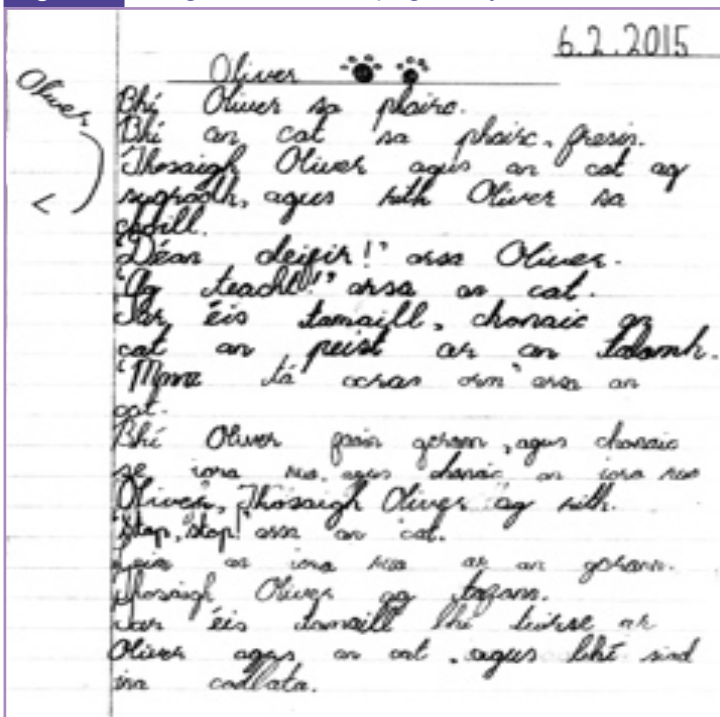 6.2.2015
Oliver
Oliver
Bhí Oliver sa phairc.
Bhí an cat sa phairc, freisin.
Thosaigh Oliver agus an cat ag
sugradh, agus rith Oliver sa
choill.
"Déan deifir!" arsa Oliver.
"Ag teacht!" arsa an cat.
Tar éis tamaill, chonaic an
cat an peist ar an talamh.
"Mmm tá ocras orm" arsa an
cat.
Bhí Oliver geran, agus chonaic
se iora rua, agus chonaic an iora rua
Oliver, Thosaigh Oliver ag rith.
"Stop, stop!" arsa an cat.
an iora rua ar an gerann.
Thosaigh Oliver ag tafann.
Tar éis tamaill bhí tuirse ar
Oliver agus an cat, agus bhí siad
ina codlata.